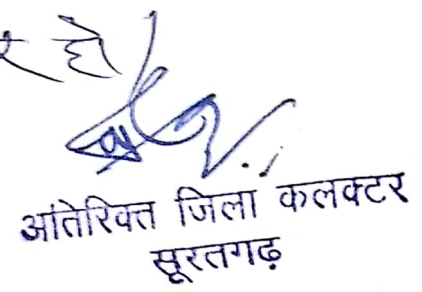 र हो
अतिरिक्त जिला कलक्टर
सूरतगढ़